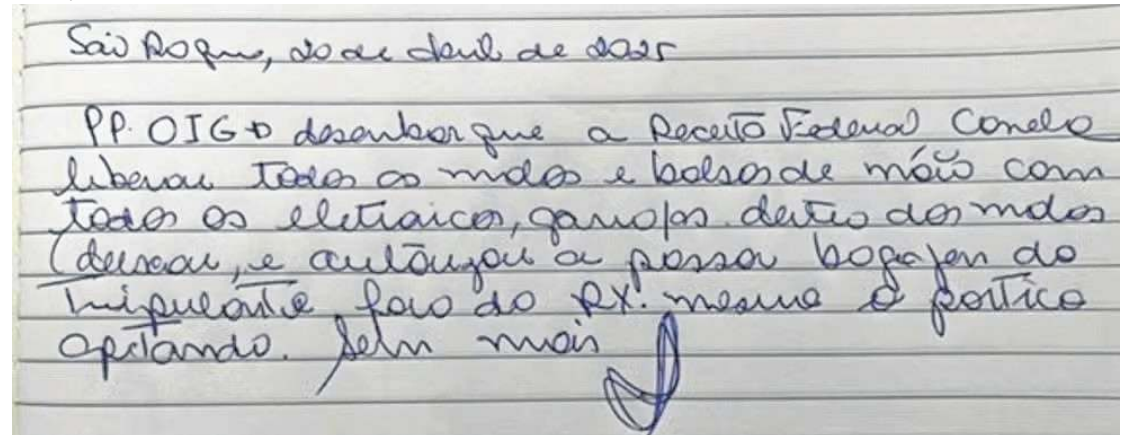 São Roque, 20 de abril de 2025
PP. OIG desembarque a Receita Federal
liberou todas as malas e bolsas de mão com
todos os eletrônicos, garrafas dentro das malas
(deixou, e autorizou a passar bagagem do
tripulante fora do RX. mesmo o pórtico
apitando. Sem mais